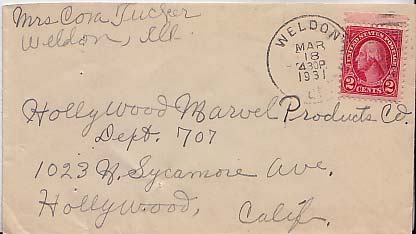 Mrs Cora Tucker
Weldon, Ill.
WELDON
MAR
18
430P
1931
UNITED STATES POSTAGE
2 CENTS 2
Hollywood Marvel Products Co.
Dept. 707
1023 N. Sycamore Ave.
Hollywood, Calif.